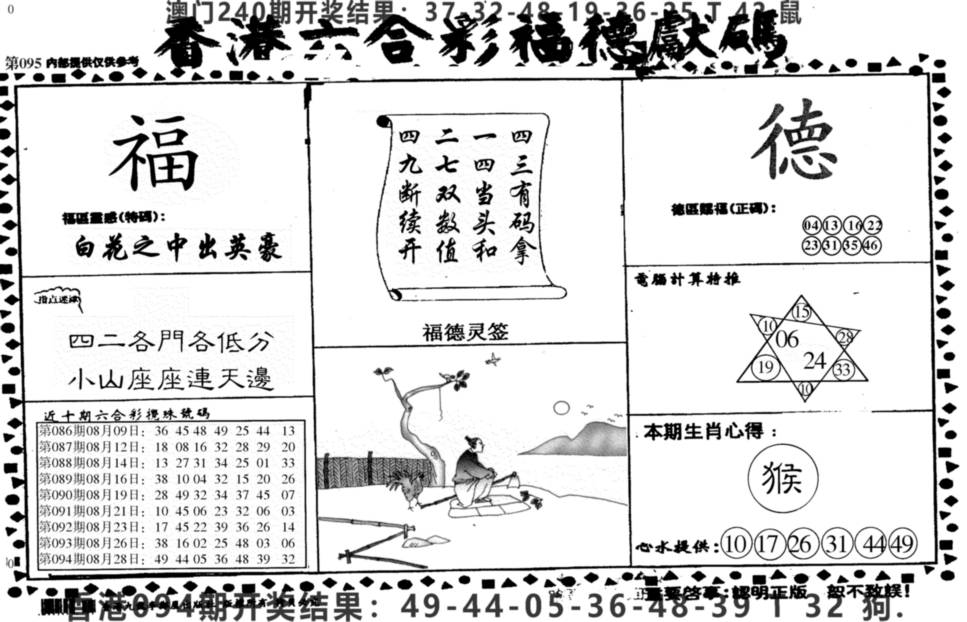 澳门240期开奖结果：37-32-48-19-36-25 T 42 鼠
香港六合彩福德獻碼
第095 内部提供仅供参考
福
福區靈感(特碼)：
白花之中出英豪
指点迷津
四二各門各低分
小山座座連天邊
近十期六合彩攪珠號碼
第086期08月09日：36 45 48 49 25 44 13
第087期08月12日：18 08 16 32 28 29 20
第088期08月14日：13 27 31 34 25 01 33
第089期08月16日：38 10 04 32 15 20 26
第090期08月19日：28 49 32 34 37 45 07
第091期08月21日：10 45 06 23 32 06 03
第092期08月23日：17 45 22 39 36 26 14
第093期08月26日：38 16 02 25 48 03 06
第094期08月28日：49 44 05 36 48 39 32
四三有码拿
一四当头和
二七双数值
四九断续开
福德灵签
德
德區賜福(正碼)：
04 13 16 22
23 31 35 46
電腦計算特推
15
10 06 28
19 24 33
10
本期生肖心得：
猴
心水提供：10 17 26 31 44 49
重要啓事：認明正版 恕不致誤！
香港094期开奖结果：49-44-05-36-48-39 T 32 狗.